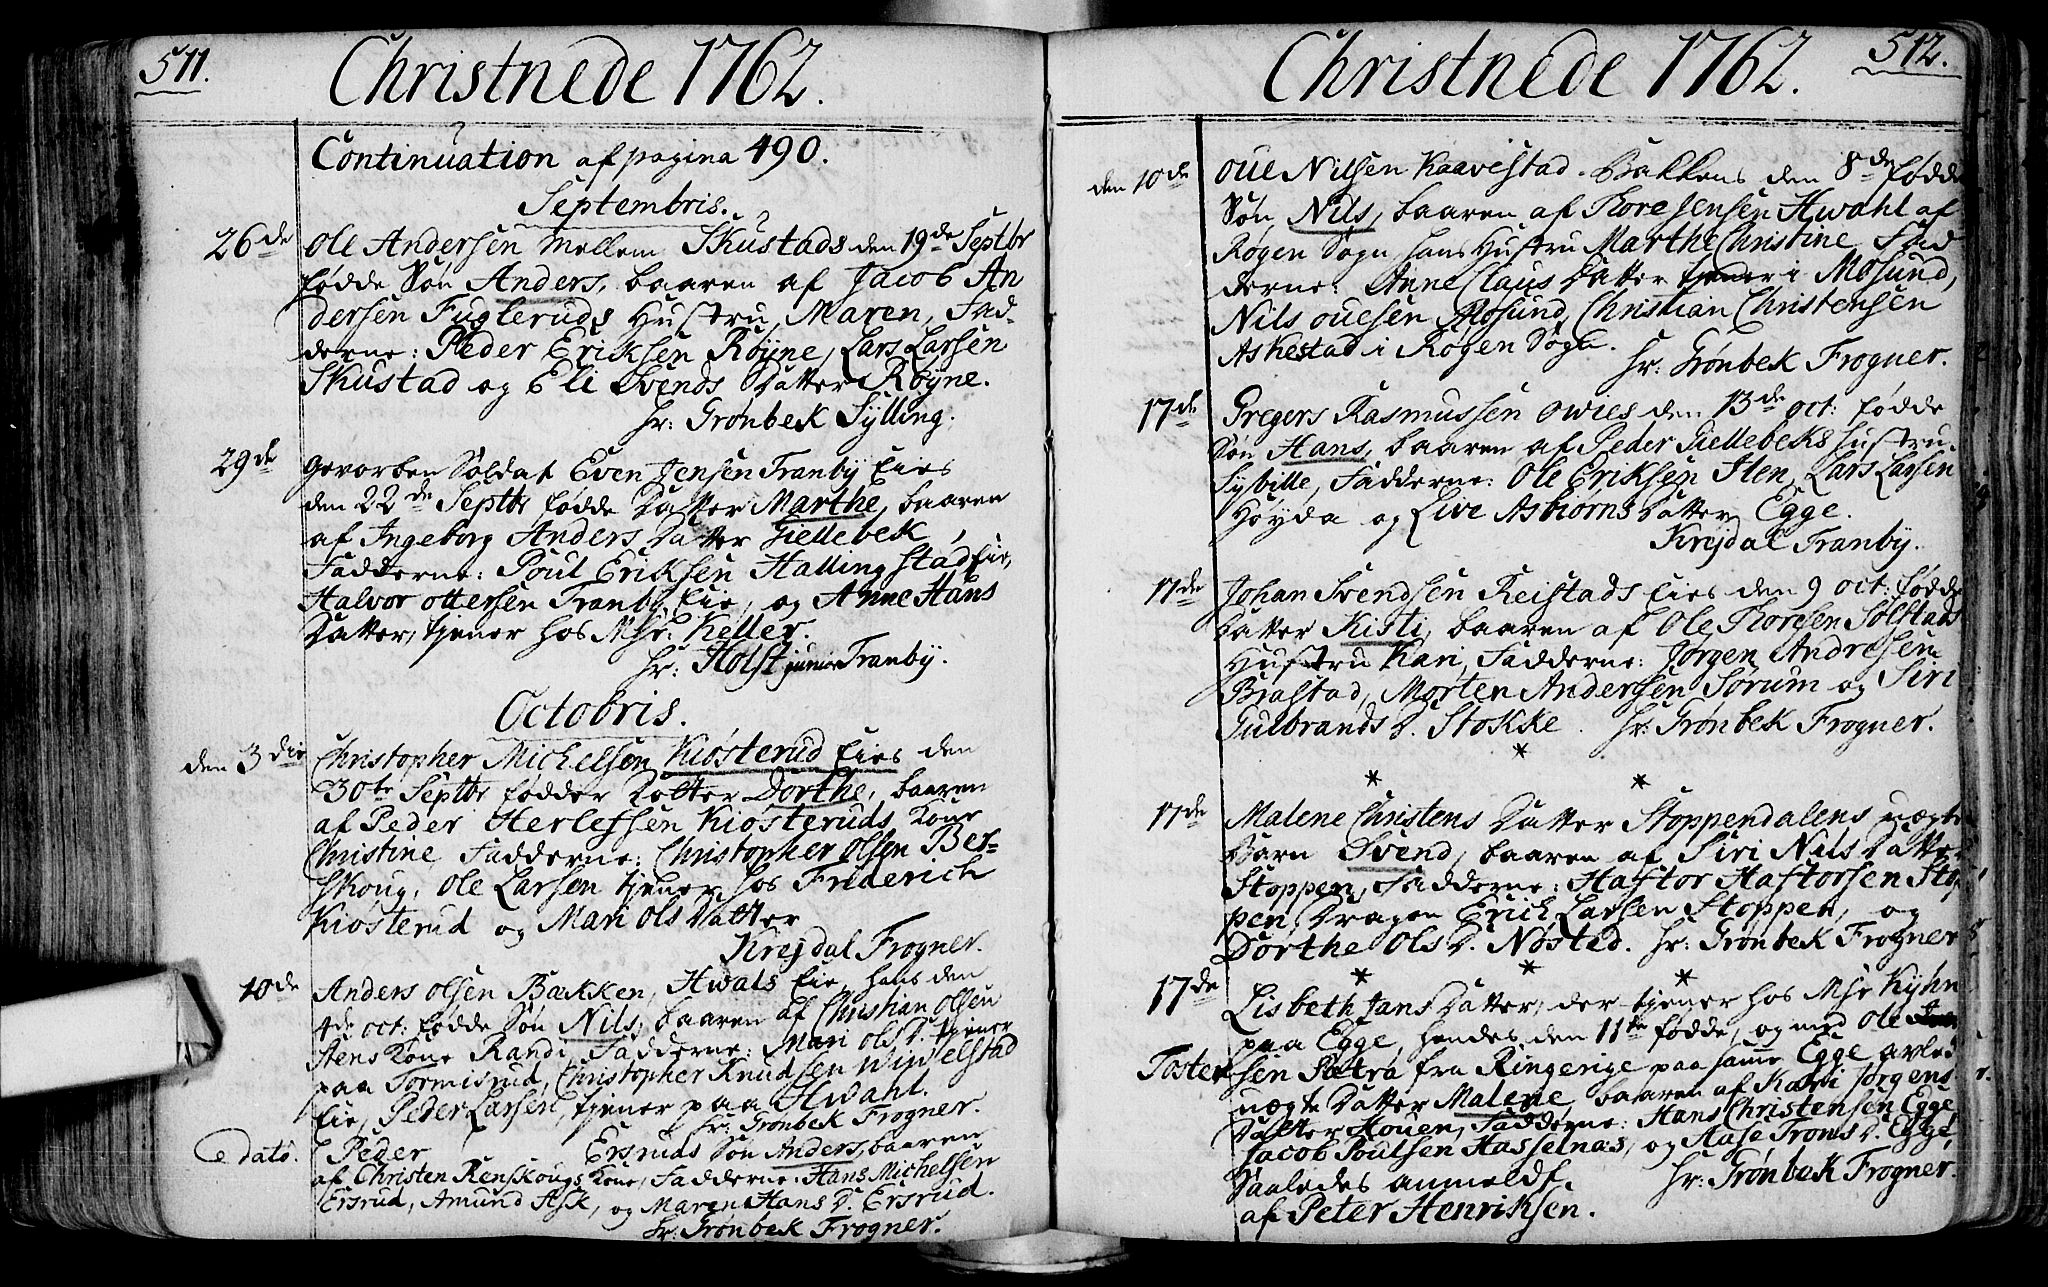 511.
Christnede 1762.
Continuation af pagina 490.
Septembris.
26de Ole Andersen mellem Skustads den 19de Septbr
fødde Søn Anders, baaren af Jacob An
dersen Fugleruds Hustru Maren, Fad-
derne: Peder Eriksen Røyne, Lars Larsen
Skustad og Eli Svends Datter Røyne.
Hr: Grønbek Sylling.
29de Gevorben Soldat Even Jensen Tranby Eies
den 22de Septbr fødde Datter Marthe, baaren
af Ingeborg Anders Datter Giellebek,
Fadderne: Poul Eriksen Hallingstad Eie,
Halvor Ottersen Tranby Eie, og Anne Hans
Datter, tjener hos Msr: Keller.
Hr: Holst junior Tranby.
Octobris.
den 3die Christopher Michelsen Kiøsterud Eies den
30te Septbr fødder Datter Dorthe, baaren
af Peder Herlefsen Kiøsteruds Kone
Christine, Fadderne: Christopher Olsen Ber-
skoug, Ole Larsen tjener hos Friderich
Kiøsterud og Mari Ols Datter
Krejdal Frogner.
10de Anders Olsen Bakken, Hwals Eie, hans den
4de oct: fødde Søn Nils, baaren af Christian Olsen
Stens Kone Randi, Fadderne: Mari Ols D. tjener
paa Tormisrud, Christopher Knudsen Windelstad
Eie, Peder Larsen, tjener paa Hwahl.
Hr: Grønbek Frogner.
Edato. Peder Ersruds Søn Anders, baaren
af Christen Renskougs Kone, Fadderne: Hans Michelsen
Ersrud, Amund Ask, og Maren Hans D. Ersrud.
Hr: Grønbek Frogner.
512.
Christnede 1762.
den 10de Oue Nilsen Kaavestad Bakkens den 8de fødde
Søn Nils, baaren af Thore Jensen Hwahl af
Røgen Sogn, hans Hustru Marthe Christine, Fad
derne: Anne Claus Datter tjener i Mosund,
Nils Ouesen Rosund, Christian Christensen
Askestad i Røgen Sogn.
Hr: Grønbek Frogner.
17de Gregers Rasmussen Owies den 13de oct: fødde
Søn Hans, baaren af Peder Giellebeks Hustru
Sybille, Fadderne: Ole Eriksen Sten, Lars Larsen
Høyda og Live Asbiørns Datter Egge.
Krejdal Tranby.
17de Johan Svendsen Reistads Eies den 9 oct: fødde
Datter Kisti, baaren af Ole Thoresen Solstads
Hustru Kari, Fadderne: Jørgen Andresen
Brastad, Morten Andersen Sørum og Siri
Gulbrands D. Stokke. Hr: Grønbek Frogner.
*
* *
17de Malene Christens Datter Stoppendalens uægte
Barn Svend, baaren af Siri Nils Datter
Stoppen, Fadderne: Haftor Haftorsen Stop
pen, Dragon Erich Larsen Stoppen, og
Dorthe Ols D. Nøsted. Hr: Grønbek Frogner
* * *
17de Lisbeth Jans Datter, der tjener hos Msr Kyhn
paa Egge, hendes den 11te fødde, og med Ole
Tostensen Sætra fra Ringerige paa samme Egge avlede
uægte Datter Malene baaren af Kari Jørgens
Datter Houen, Fadderne: Hans Christensen Egge,
Jacob Poulsen Hasselnæs, og Aase Troms D. Egge,
Saaledes anmeldt Hr: Grønbek Frogner.
af Peter Henriksen.